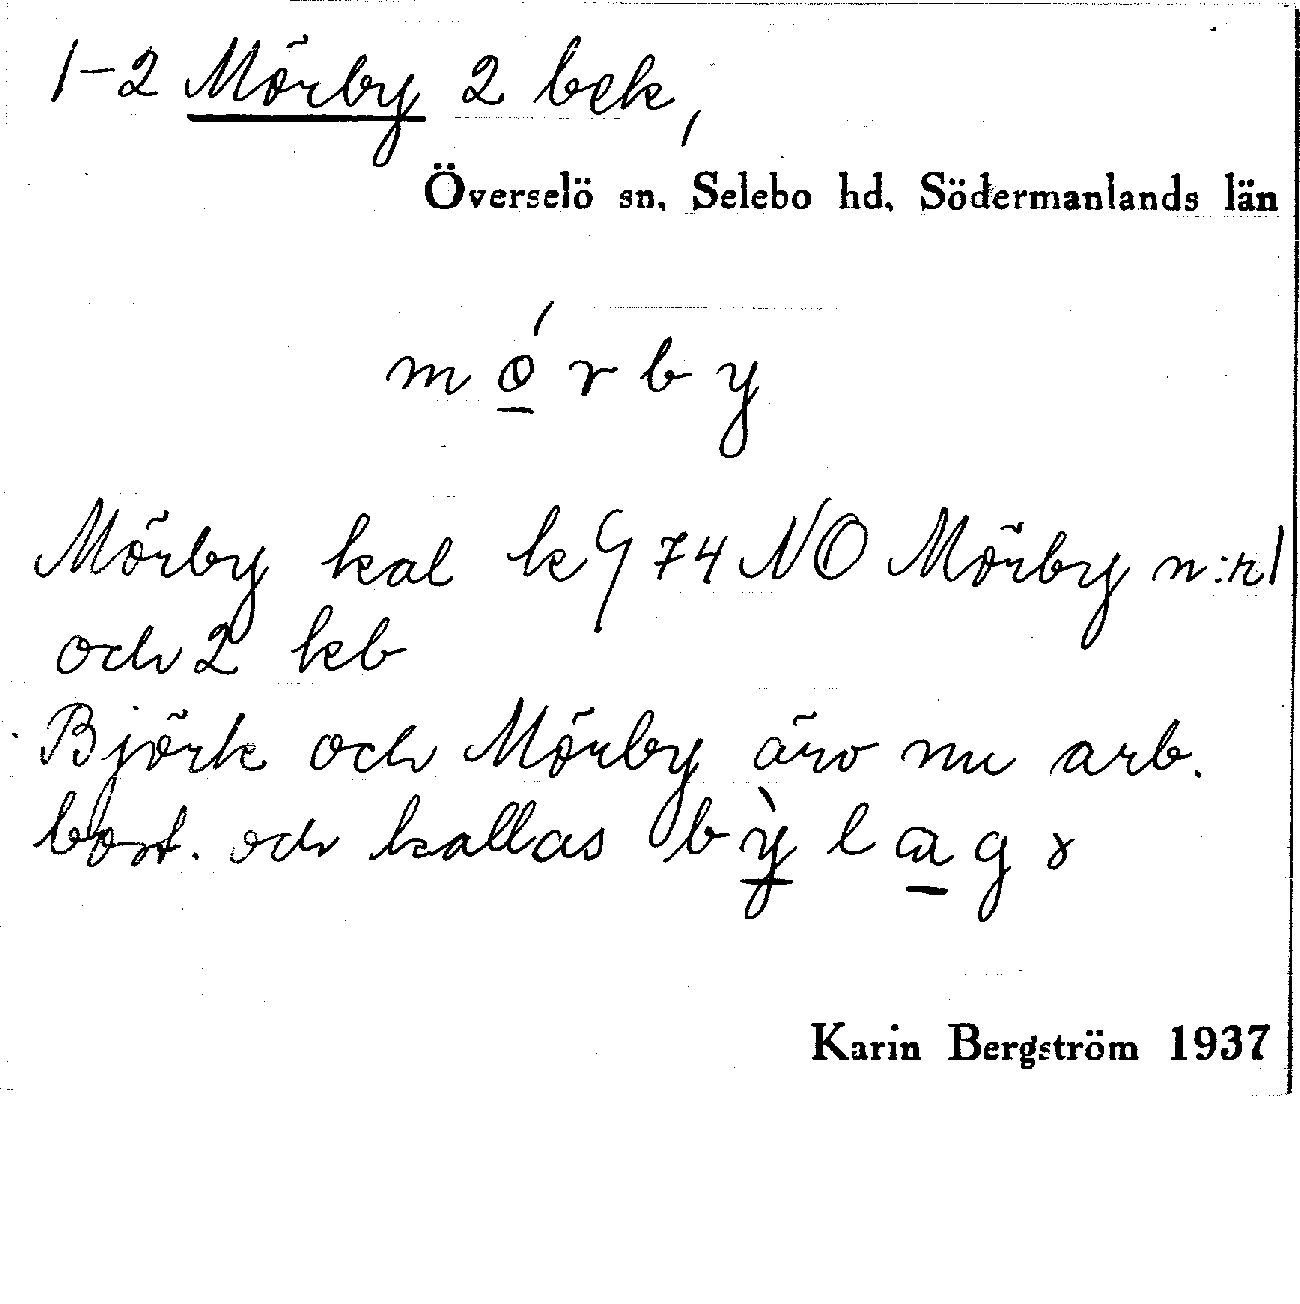 1-2 Mörby 2 bek,
Överselö sn, Selebo hd, Södermanlands län
mǿrby
Mörby kal k G 74 NO Mörby n:r 1
och 2 kb
Björk och Mörby äro nu arb.
bost. och kallas bỳlagɤ
Karin Bergström 1937